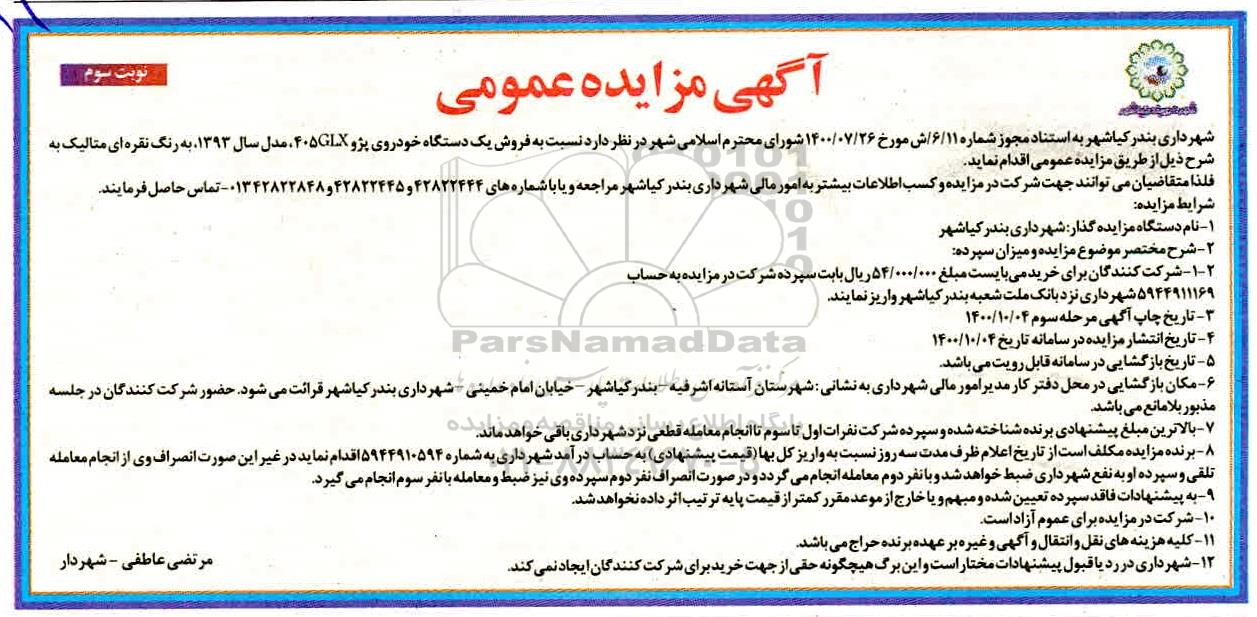 شهرداری بندر کیاشهر
نوبت سوم
آگهی مزایده عمومی
شهرداری بندر کیاشهر به استناد مجوز شماره ۶/۱۱/ش مورخ ۱۴۰۰/۰۷/۲۶ شورای محترم اسلامی شهر در نظر دارد نسبت به فروش یک دستگاه خودروی پژو ۴۰۵GLX، مدل سال ۱۳۹۳، به رنگ نقره ای متالیک به
شرح ذیل از طریق مزایده عمومی اقدام نماید.
فلذا متقاضیان می توانند جهت شرکت در مزایده و کسب اطلاعات بیشتر به امور مالی شهرداری بندر کیاشهر مراجعه و یا با شماره های ۴۲۸۲۲۴۴۴ و ۴۲۸۲۲۴۴۵ و ۰۱۳۴۲۸۲۲۸۴۸-تماس حاصل فرمایند.
شرایط مزایده:
۱-نام دستگاه مزایده گذار: شهرداری بندر کیاشهر
۲-شرح مختصر موضوع مزایده و میزان سپرده:
۱-۲-شرکت کنندگان برای خرید می بایست مبلغ ۵۴/۰۰۰/۰۰۰ ریال بابت سپرده شرکت در مزایده به حساب
۵۹۴۴۹۱۱۱۶۹ شهرداری نزد بانک ملت شعبه بندر کیاشهر واریز نمایند.
۳-تاریخ چاپ آگهی مرحله سوم ۱۴۰۰/۱۰/۰۴
۴-تاریخ انتشار مزایده در سامانه تاریخ ۱۴۰۰/۱۰/۰۴
۵-تاریخ بازگشایی در سامانه قابل رویت می باشد.
۶-مکان بازگشایی در محل دفتر کار مدیر امور مالی شهرداری به نشانی: شهرستان آستانه اشرفیه -بندر کیاشهر -خیابان امام خمینی -شهرداری بندر کیاشهر قرائت می شود. حضور شرکت کنندگان در جلسه
مذبور بلامانع می باشد.
۷-بالاترین مبلغ پیشنهادی برنده شناخته شده و سپرده شرکت نفرات اول تا سوم تا انجام معامله قطعی نزد شهرداری باقی خواهد ماند.
۸-برنده مزایده مکلف است از تاریخ اعلام ظرف مدت سه روز نسبت به واریز کل بها (قیمت پیشنهادی) به حساب درآمد شهرداری به شماره ۵۹۴۴۹۱۰۵۹۴ اقدام نماید در غیر این صورت انصراف وی از انجام معامله
تلقی و سپرده او به نفع شهرداری ضبط خواهد شد و با نفر دوم معامله انجام می گردد و در صورت انصراف نفر دوم سپرده وی نیز ضبط و معامله با نفر سوم انجام می گیرد.
۹-به پیشنهادات فاقد سپرده تعیین شده و مبهم و یا خارج از موعد مقرر کمتر از قیمت پایه ترتیب اثر داده نخواهد شد.
۱۰-شرکت در مزایده برای عموم آزاد است.
۱۱-کلیه هزینه های نقل و انتقال و آگهی و غیره بر عهده برنده حراج می باشد.
۱۲-شهرداری در رد یا قبول پیشنهادات مختار است و این برگ هیچگونه حقی از جهت خرید برای شرکت کنندگان ایجاد نمی کند.
مرتضی عاطفی -شهردار
ParsNamadData
پایگاه اطلاع رسانی مناقصه و مزایده